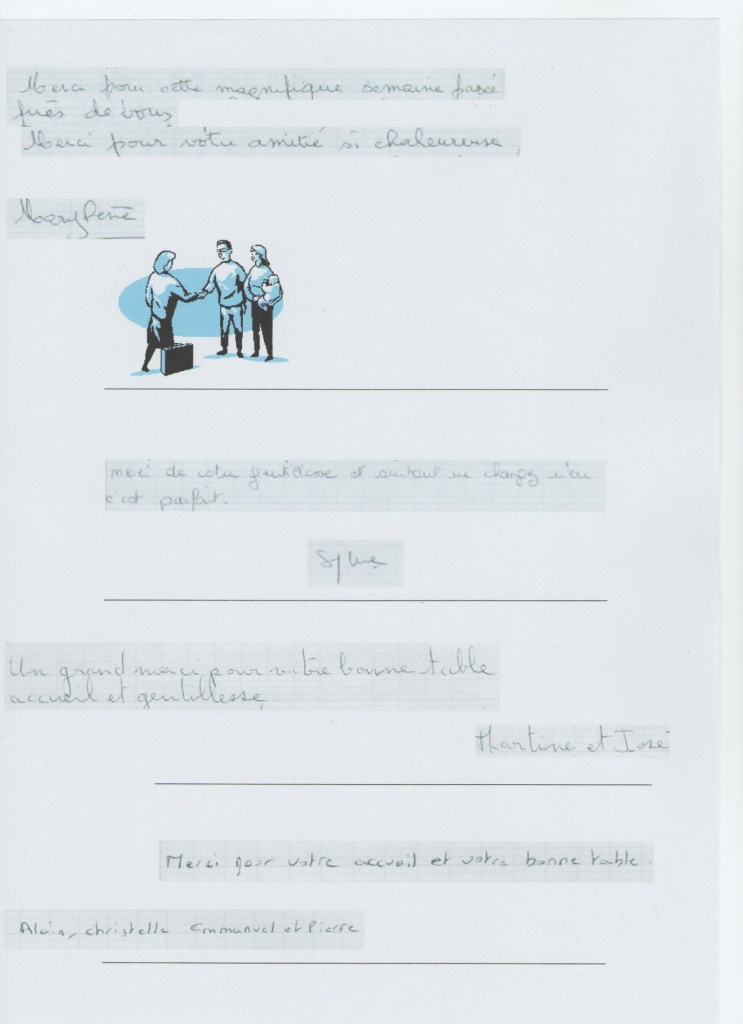 Merci pour cette magnifique semaine passé
près de vous
Merci pour votre amitié si chaleureuse,
Mary René
merci de votre gentillesse et surtout ne changez rien
c'est parfait.
Sylvie
Un grand merci pour votre bonne table
accueil et gentillesse
Martine et José
Merci pour votre accueil et votre bonne table.
Alain, christelle Emmanuel et Pierre